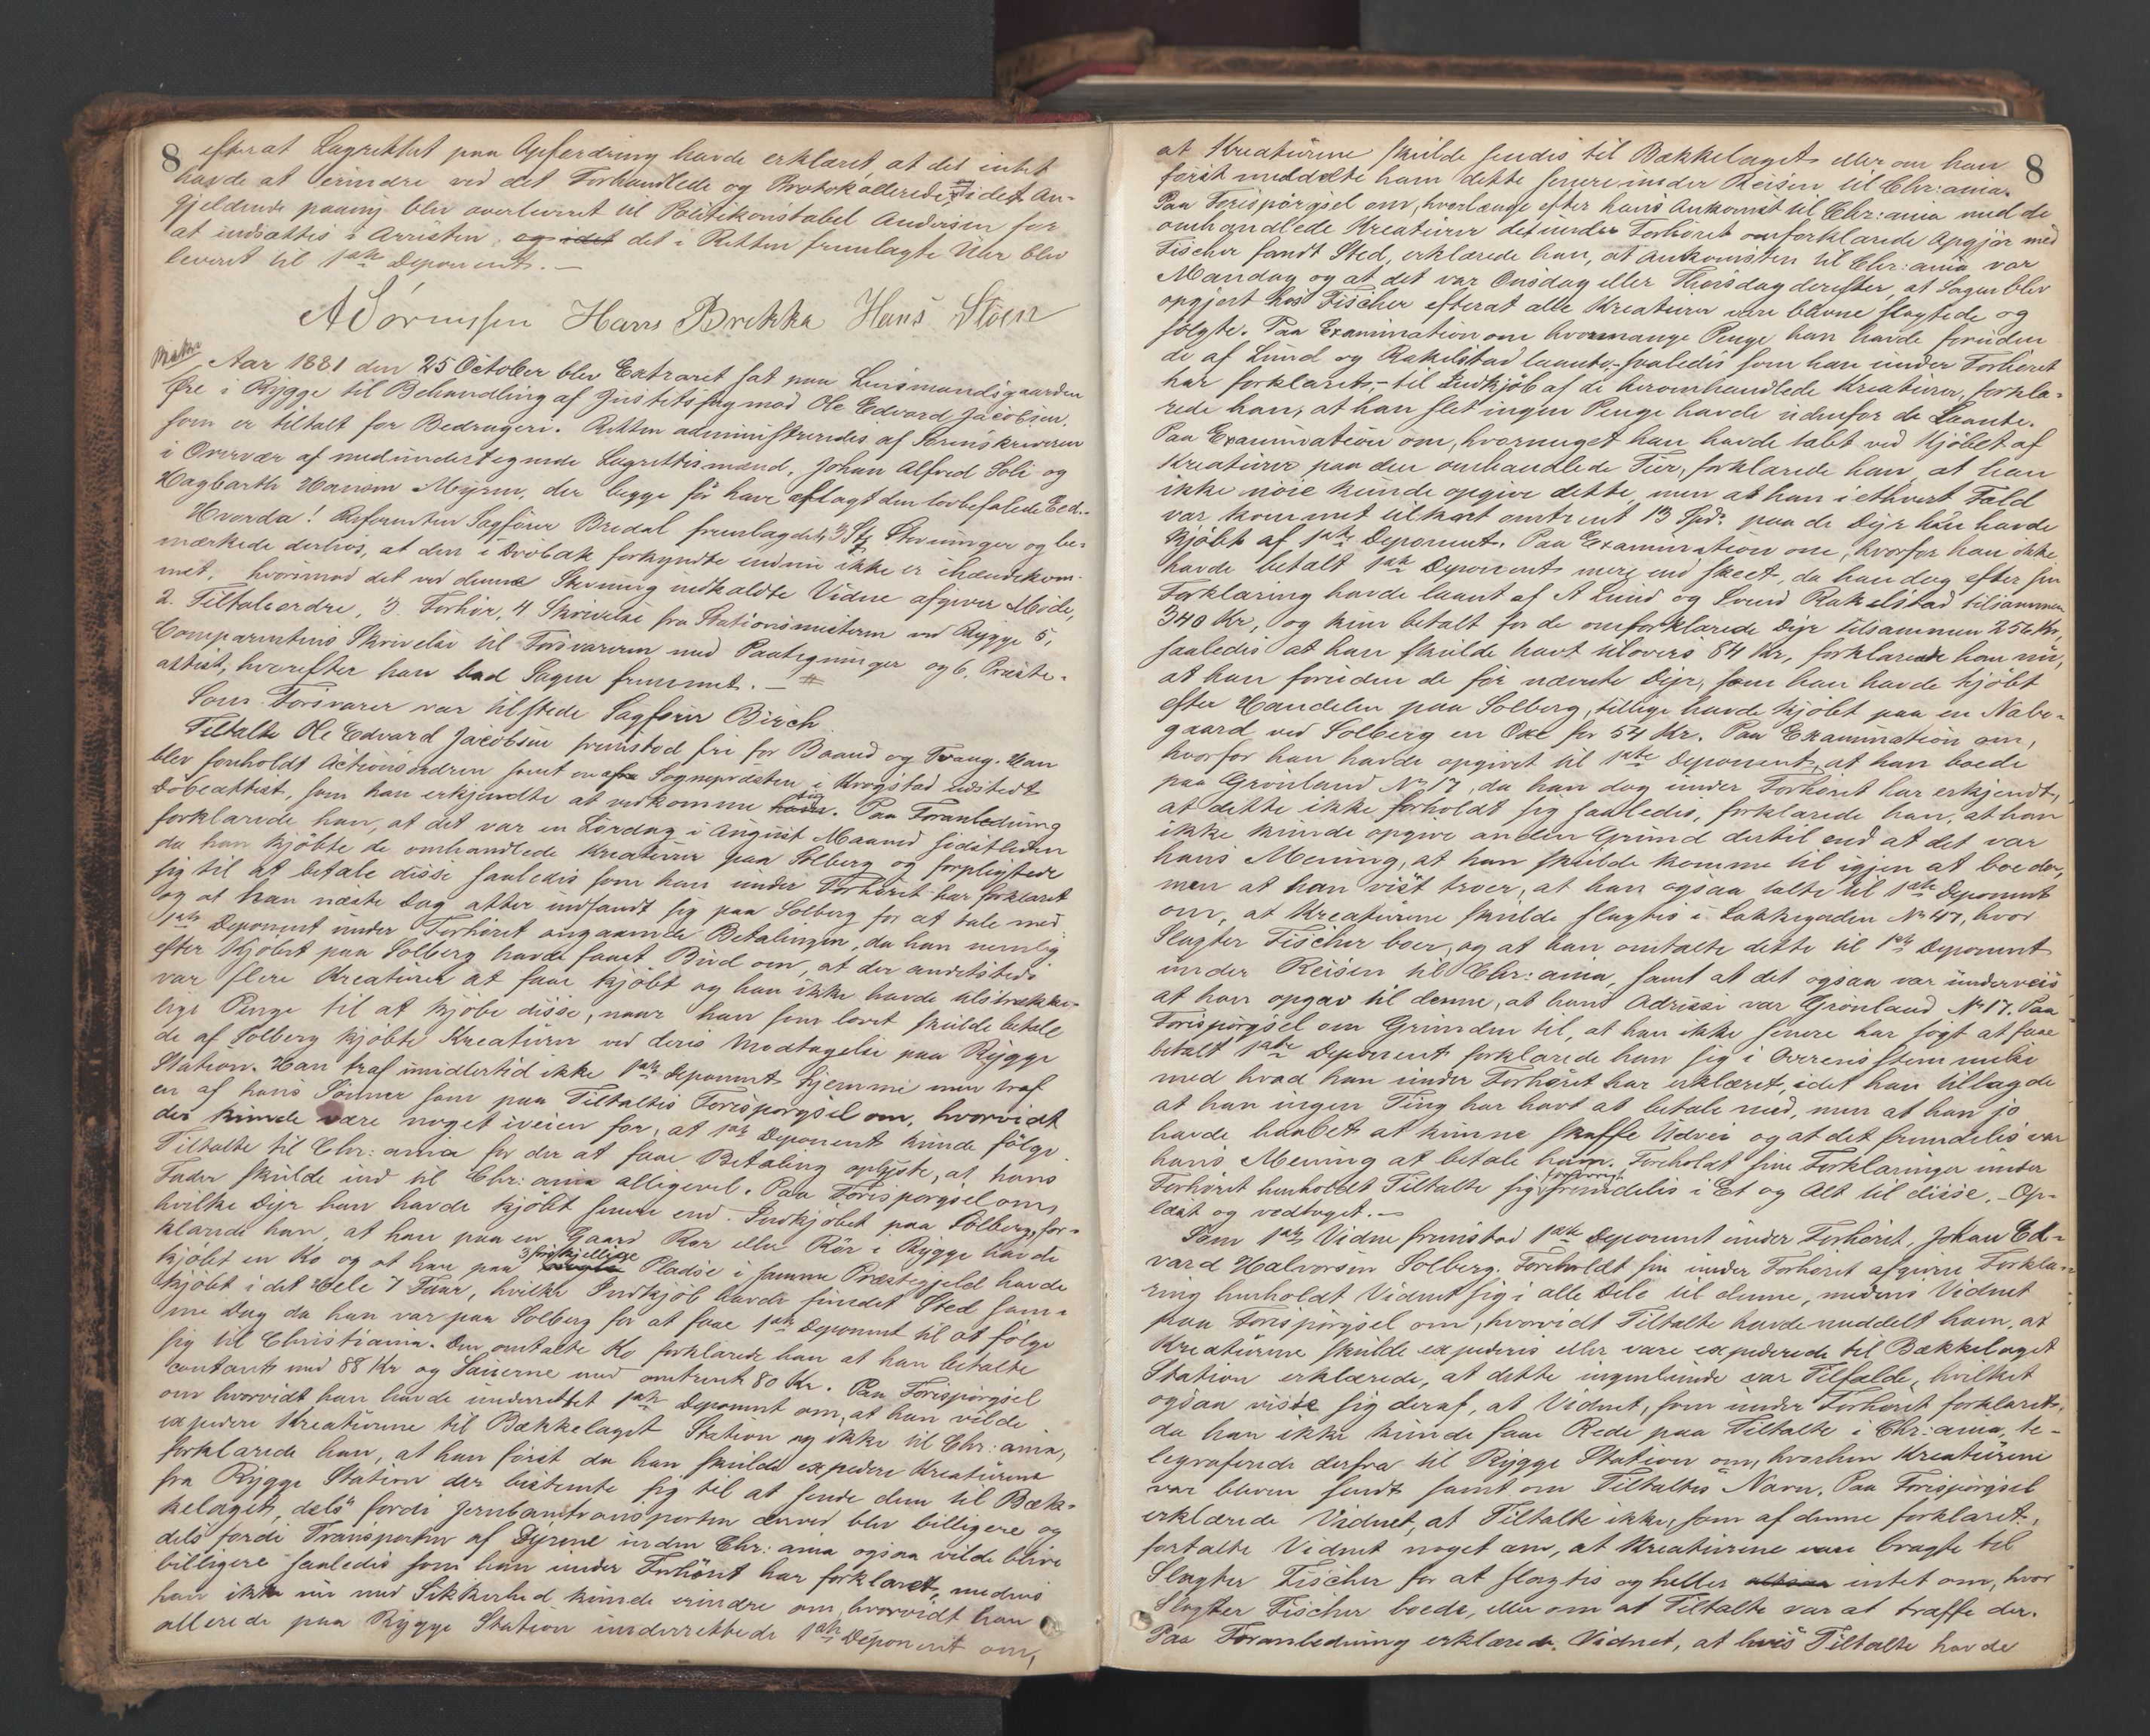 8
efterat Lagrettet paa Opfordring havde erklæret, at det intet
havde at erindre ved det Forhandlede og Protokollerede, og idet An-
gjeldende paany blev overleveret til Politikonstabel Andersen for
at indsættes i Arresten, og idet det i Retten fremlagte Uhr blev
leveret til 1ste Deponent. —
A Sörenssen Hans Brekke Hans Stöen
Aar 1881 den 25 October blev Extraret sat paa Lensmandsgaarden
Øre i Rygge til Behandling af Justitssag mod Ole Edvard Jacobsen,
som er tiltalt for Bedrageri. Retten administreredes af Sorenskriveren
i Overvær af medundertegnede Lagrettesmænd, Johan Alfred Soli og
Hagbarth Hansen Myren, der begge før have aflagt den lovbefalede Eed. -
Hvorda! Referenten Sagfører Bredal fremlagde 1, 3 Stk Stevninger og be-
mærkede derhos, at den i Drøbak forkyndte endnu ikke er ihændekom-
met, hvorimod det ved denne Stevning indkaldte Vidne afgiver Møde,
2. Tiltaleordre, 3. Forhør, 4. Skrivelse fra Stationsmesteren ved Rygge 5,
Comparentens Skrivelse til Forsvareren med Paategninger og 6. Præste-
attest, hvorefter han bad Sagen fremmet. —
Som Forsvarer var tilstede Sagfører Birch
Tiltalte Ole Edvard Jacobsen fremstod fri for Baand og Tvang. Han
blev foreholdt Actionsordren samt en af Sognepræsten i Krogstad udstedt
Døbeattest, som han erkjendte at vedkomme sig. Paa Foranledning
forklarede han, at det var en Lørdag i August Maaned sidstleden
da han kjøbte de omhandlede Kreaturer paa Solberg og forpligtede
sig til at betale disse saaledes som han under Forhøret har forklaret
og at han næste Dag atter indfandt sig paa Solberg for at tale med
1ste Deponent under Forhøret angaaende Betalingen, da han nemlig
efter Kjøbet paa Solberg havde faaet Bud om, at der andetsteds
var flere Kreaturer at faae kjøbt og han ikke havde tilstrække-
lige Penge til at kjøbe disse, naar han som lovet skulde betale
de af Solberg kjøbte Kreaturer ved deres Modtagelse paa Rygge
Station. Han traf imidlertid ikke 1ste Deponent hjemme men traf
en af hans Sønner som paa Tiltaltes Forespørgsel om, hvorvidt
der kunde være noget iveien for, at 1ste Deponent kunde følge
Tiltalte til Chr:ania for der at faae Betaling oplyste, at hans
Fader skulde ind til Chr:ania alligevel. Paa Forespørgsel om,
hvilke Dyr han havde kjøbt senere end Indkjøbet paa Solberg, for-
klarede han, at han paa en Gaard Rør eller Rör i Rygge havde
kjøbt en Ko og at han paa 3 forskjellige Pladse i samme Præstegjeld havde
kjøbt i det Hele 7 Faar, hvilke Indkjøb havde fundet Sted sam-
me Dag da han var paa Solberg for at faae 1ste Deponent til at følge
sig til Christiania. Den omtalte Ko forklarede han at han betalte
contant med 88 Kr og Sauerne med omtrent 80 Kr. Paa Forespørgsel
om hvorvidt han havde underrettet 1ste Deponent om, at han vilde
expedere Kreaturene til Bækkelaget Station og ikke til Chr:ania,
forklarede han, at han først da han skulde expedere Kreaturene
fra Rygge Station der bestemte sig til at sende dem til Bæk-
kelaget, dels fordi Jernbanetransporten derved blev billigere og
dels fordi Transporten af Dyrene inden Chr:ania ogsaa vilde blive
billigere saaledes som han under Forhøret har forklaret, medens
han ikke nu med Sikkerhed kunde erindre om, hvorvidt han
allerede paa Rygge Station underrettede 1ste Deponent om,
8
at Kreaturene skulde sendes til Bækkelaget eller om han
først meddelte ham dette senere under Reisen til Chr:ania.
Paa Forespørgsel om, hvorlænge efter hans Ankomst til Chr:ania med de
omhandlede Kreaturer det under Forhøret omforklarede Opgjør med
Fischer fandt Sted, erklærede han, at Ankomsten til Chr:ania var
Mandag og at det var Onsdag eller Thorsdag derefter, at Sagen blev
opgjort hos Fischer efterat alle Kreaturer vare blevne slagtede og
solgte. Paa Examination om hvormange Penge han havde foruden
de af Lund og Rakelstad laante, - saaledes som han under Forhøret
har forklaret, - til Indkjøb af de heromhandlede Kreaturer, forkla-
rede han, at han slet ingen Penge havde udenfor de Laante.
Paa Examination om, hvormeget han havde tabt ved Kjøbet af
Kreaturer paa den omhandlede Tur, forklarede han, at han
ikke nöie kunde opgive dette, men at han i ethvert Fald
var kommet tilkort omtrent 13 Spd. paa de Dyr han havde
kjøbt af 1ste Deponent. Paa Examination om, hvorfor han ikke
havde betalt 1ste Deponent mere end skeet, da han dog efter sin
Forklaring havde laant af A Lund og Svend Rakelstad tilsammen
340 Kr, og kun betalt for de omforklarede Dyr tilsammen 256 Kr,
saaledes at han skulde havt tilovers 84 Kr, forklarede han nu,
at han foruden de før nævnte Dyr, som han havde kjøbt
efter Handelen paa Solberg, tillige havde kjøbt paa en Nabo-
gaard ved Solberg en Oxe for 54 Kr. Paa Examination om,
hvorfor han havde opgivet til 1ste Deponent, at han boede
paa Grönland No 17, da han dog under Forhøret har erkjendt,
at dette ikke forholdt sig saaledes, forklarede han, at han
ikke kunde opgive anden Grund dertil end at det var
hans Mening, at han skulde komme til igjen at boe der,
men at han vist troer, at han ogsaa talte til 1ste Deponent
om, at Kreaturene skulde slagtes i Lakkegaden No 47, hvor
Slagter Fischer boer, og at han omtalte dette til 1ste Deponent
under Reisen til Chr:ania, samt at det ogsaa var underveis
at han opgav til denne, at hans Adresse var Grönland No 17. Paa
Forespørgsel om Grunden til, at han ikke senere har søgt at faae
betalt 1ste Deponent forklarede han sig i Overensstemmelse
med hvad han under Forhøret har erklæret, idet han tillagde
at han ingen Ting har havt at betale med, men at han jo
havde haabet at kunne skaffe Udvei og at det fremdeles var
hans Mening at betale ham. Foreholdt sine Forklaringer under
Forhøret henholdt Tiltalte sig forøvrigt fremdeles i Et og Alt til disse. - Op-
læst og vedtaget. —
Som 1ste Vidne fremstod 1ste Deponent under Forhøret, Johan Ed-
vard Halvorsen Solberg. Foreholdt sin under Forhøret afgivne Forkla-
ring henholdt Vidnet sig i alle Dele til denne, medens Vidnet
paa Forespørgsel om, hvorvidt Tiltalte havde meddelt ham, at
Kreaturene skulde expederes eller vare expederede til Bækkelaget
Station erklærede, at dette ingenlunde var Tilfælde, hvilket
ogsaa viste sig deraf, at Vidnet, som under Forhøret forklaret,
da han ikke kunde faae Rede paa Tiltalte i Chr:ania, te-
legraferede derfra til Rygge Station om, hvorhen Kreaturene
var bleven sendt samt om Tiltaltes Navn. Paa Forespørgsel
erklærede Vidnet, at Tiltalte ikke, som af denne forklaret,
fortalte Vidnet noget om, at Kreaturene vare bragte til
Slagter Fischer for at slagtes og heller intet om, hvor
Slagter Fischer boede, eller om at Tiltalte var at træffe der.
Paa Foranledning erklærede Vidnet, at hvis Tiltalte havde